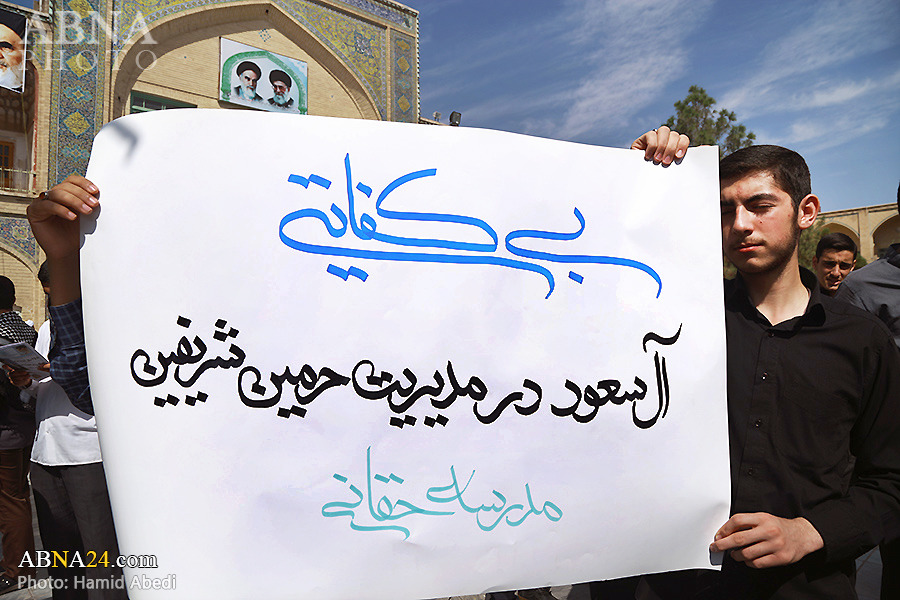 ABNA
PHOTO
بی کفایتی
آل سعود در مدیریت حرمین شریفین
مدرسه ی حقانی
ABNA24.com
Photo: Hamid Abedi